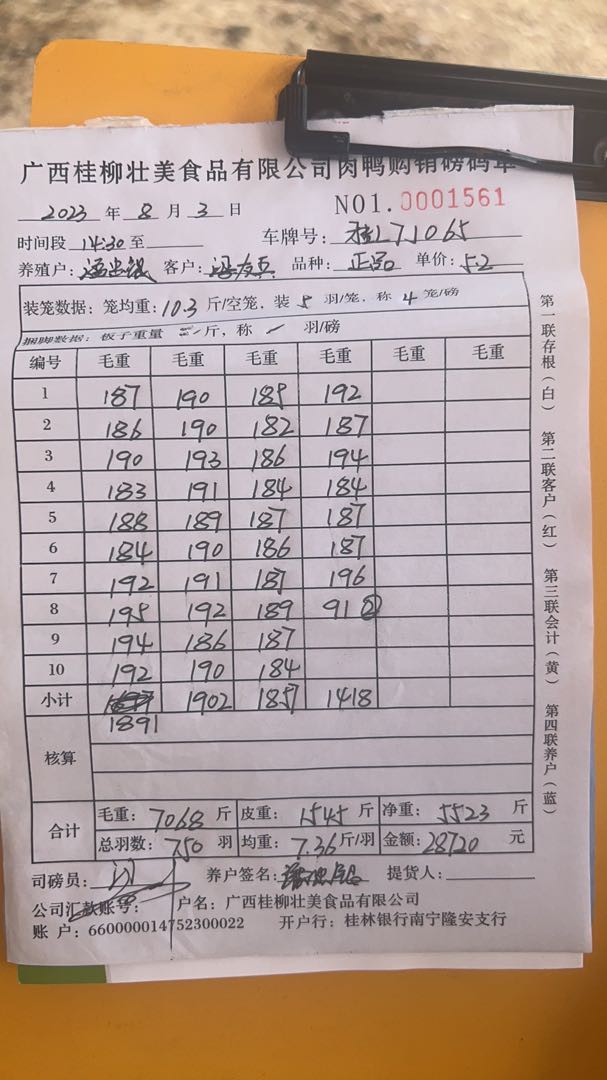 广西桂柳壮美食品有限公司肉鸭购销磅码单
2023 年 8 月 3 日 NO1. 0001561
时间段 14:30 至 车牌号: 桂J71065
养殖户: 客户: 冯友兵 品种: 正品 单价: 5.2
装笼数据: 笼均重: 10.3 斤/空笼, 装 5 羽/笼, 称 4 笼/磅
捆脚数据: 板子重量 斤, 称 羽/磅
编号 毛重 毛重 毛重 毛重 毛重 毛重
1 187 190 185 192
2 186 190 182 187
3 190 193 186 194
4 183 191 184 184
5 188 189 187 187
6 184 190 186 187
7 192 191 187 196
8 195 192 189 91②
9 194 186 187
10 192 190 184
小计 1902 1857 1418
1891
核算
合计 毛重: 7068 斤 皮重: 1545 斤 净重: 5523 斤
总羽数: 750 羽 均重: 7.36 斤/羽 金额: 28720 元
司磅员: 养户签名: 提货人:
公司汇款账号: 户名: 广西桂柳壮美食品有限公司
账 户: 660000014752300022 开户行: 桂林银行南宁隆安支行
第一联存根(白) 第二联客户(红) 第三联会计(黄) 第四联养户(蓝)